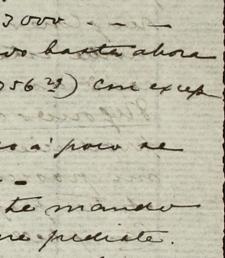 3.000 —
vo hasta ahora
756 29) con excep
o á poco se
—
te mando
me pediste.